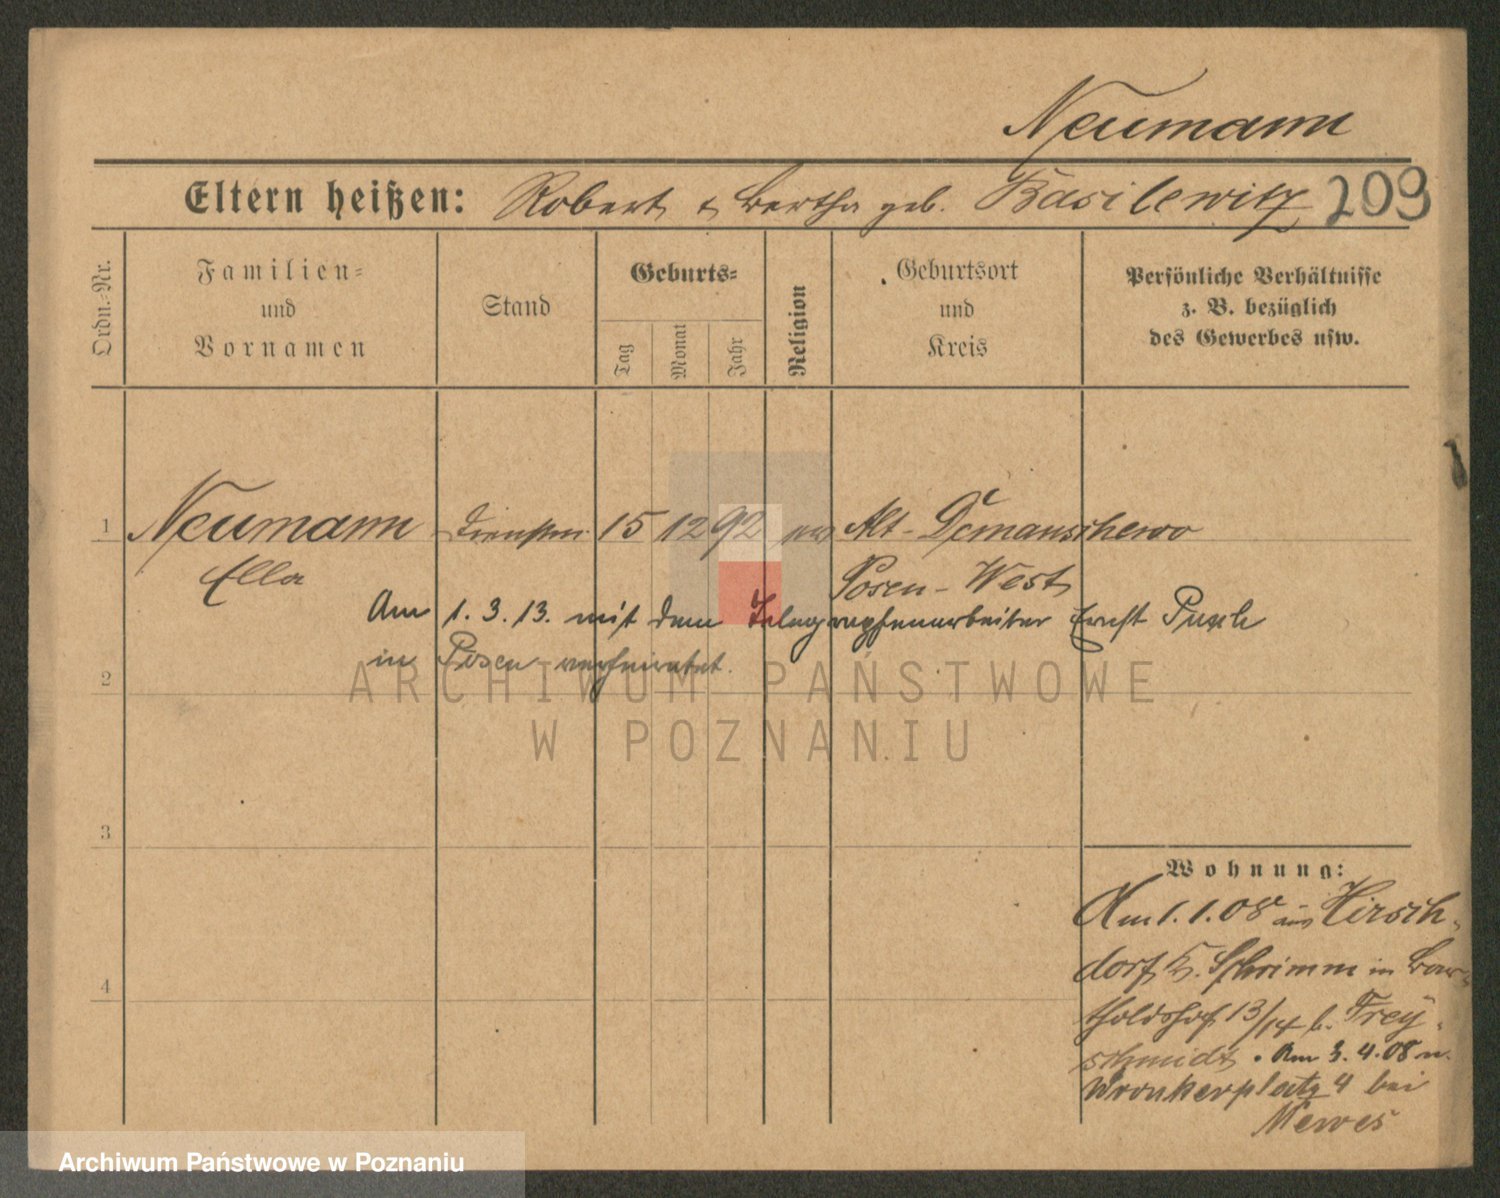 Neumann
Eltern heißen: Robert & Bertha geb. Basilewitz 209
Ordn.=Nr.
Familien=
und
Vornamen
Stand
Geburts=
Tag
Monat
Jahr
Religion
Geburtsort
und
Kreis
Persönliche Verhältnisse
z. B. bezüglich
des Gewerbes usw.
1 Neumann 15 12 92 ev Alt-Demanschewo
Ella Posen-West
Am 1. 3. 13. mit dem Telegraphenarbeiter Ernst
in Posen verheiratet.
2
ARCHIWUM PAŃSTWOWE
W POZNANIU
3
Wohnung:
Am 1. 1. 08 aus Hirsch-
dorf K. Schrimm in Bar-
tholdshof 13/14 b. Frey-
schmidt. Am 3. 4. 08 n.
4
Wronkerplatz 4 bei
Mewes
Archiwum Państwowe w Poznaniu